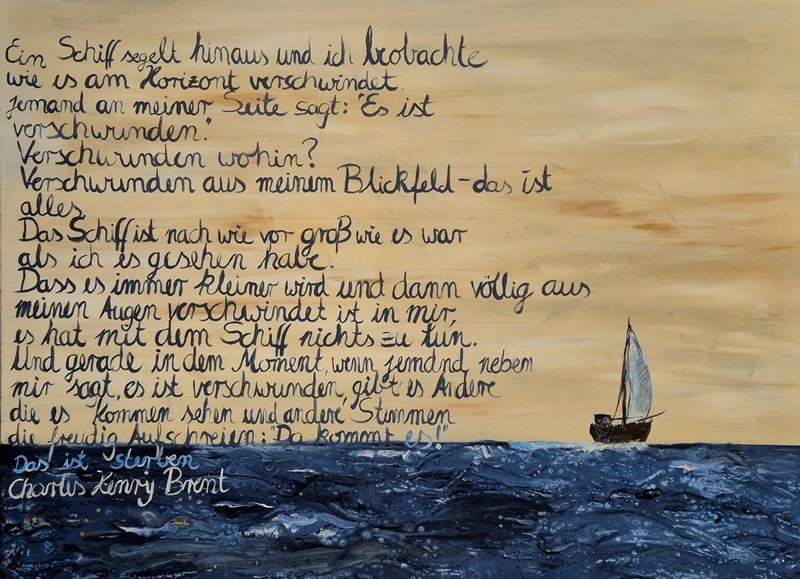 Ein Schiff segelt hinaus und ich beobachte
wie es am Horizont verschwindet.
Jemand an meiner Seite sagt: "Es ist
verschwunden."
Verschwunden wohin?
Verschwunden aus meinem Blickfeld - das ist
alles.
Das Schiff ist nach wie vor groß wie es war
als ich es gesehen habe.
Dass es immer kleiner wird und dann völlig aus
meinen Augen verschwindet ist in mir,
es hat mit dem Schiff nichts zu tun.
Und gerade in dem Moment, wenn jemand neben
mir sagt, es ist verschwunden, gibt es Andere
die es kommen sehen und andere Stimmen
die freudig Aufschreien: "Da kommt es!"
Das ist sterben
Charles Henry Brent